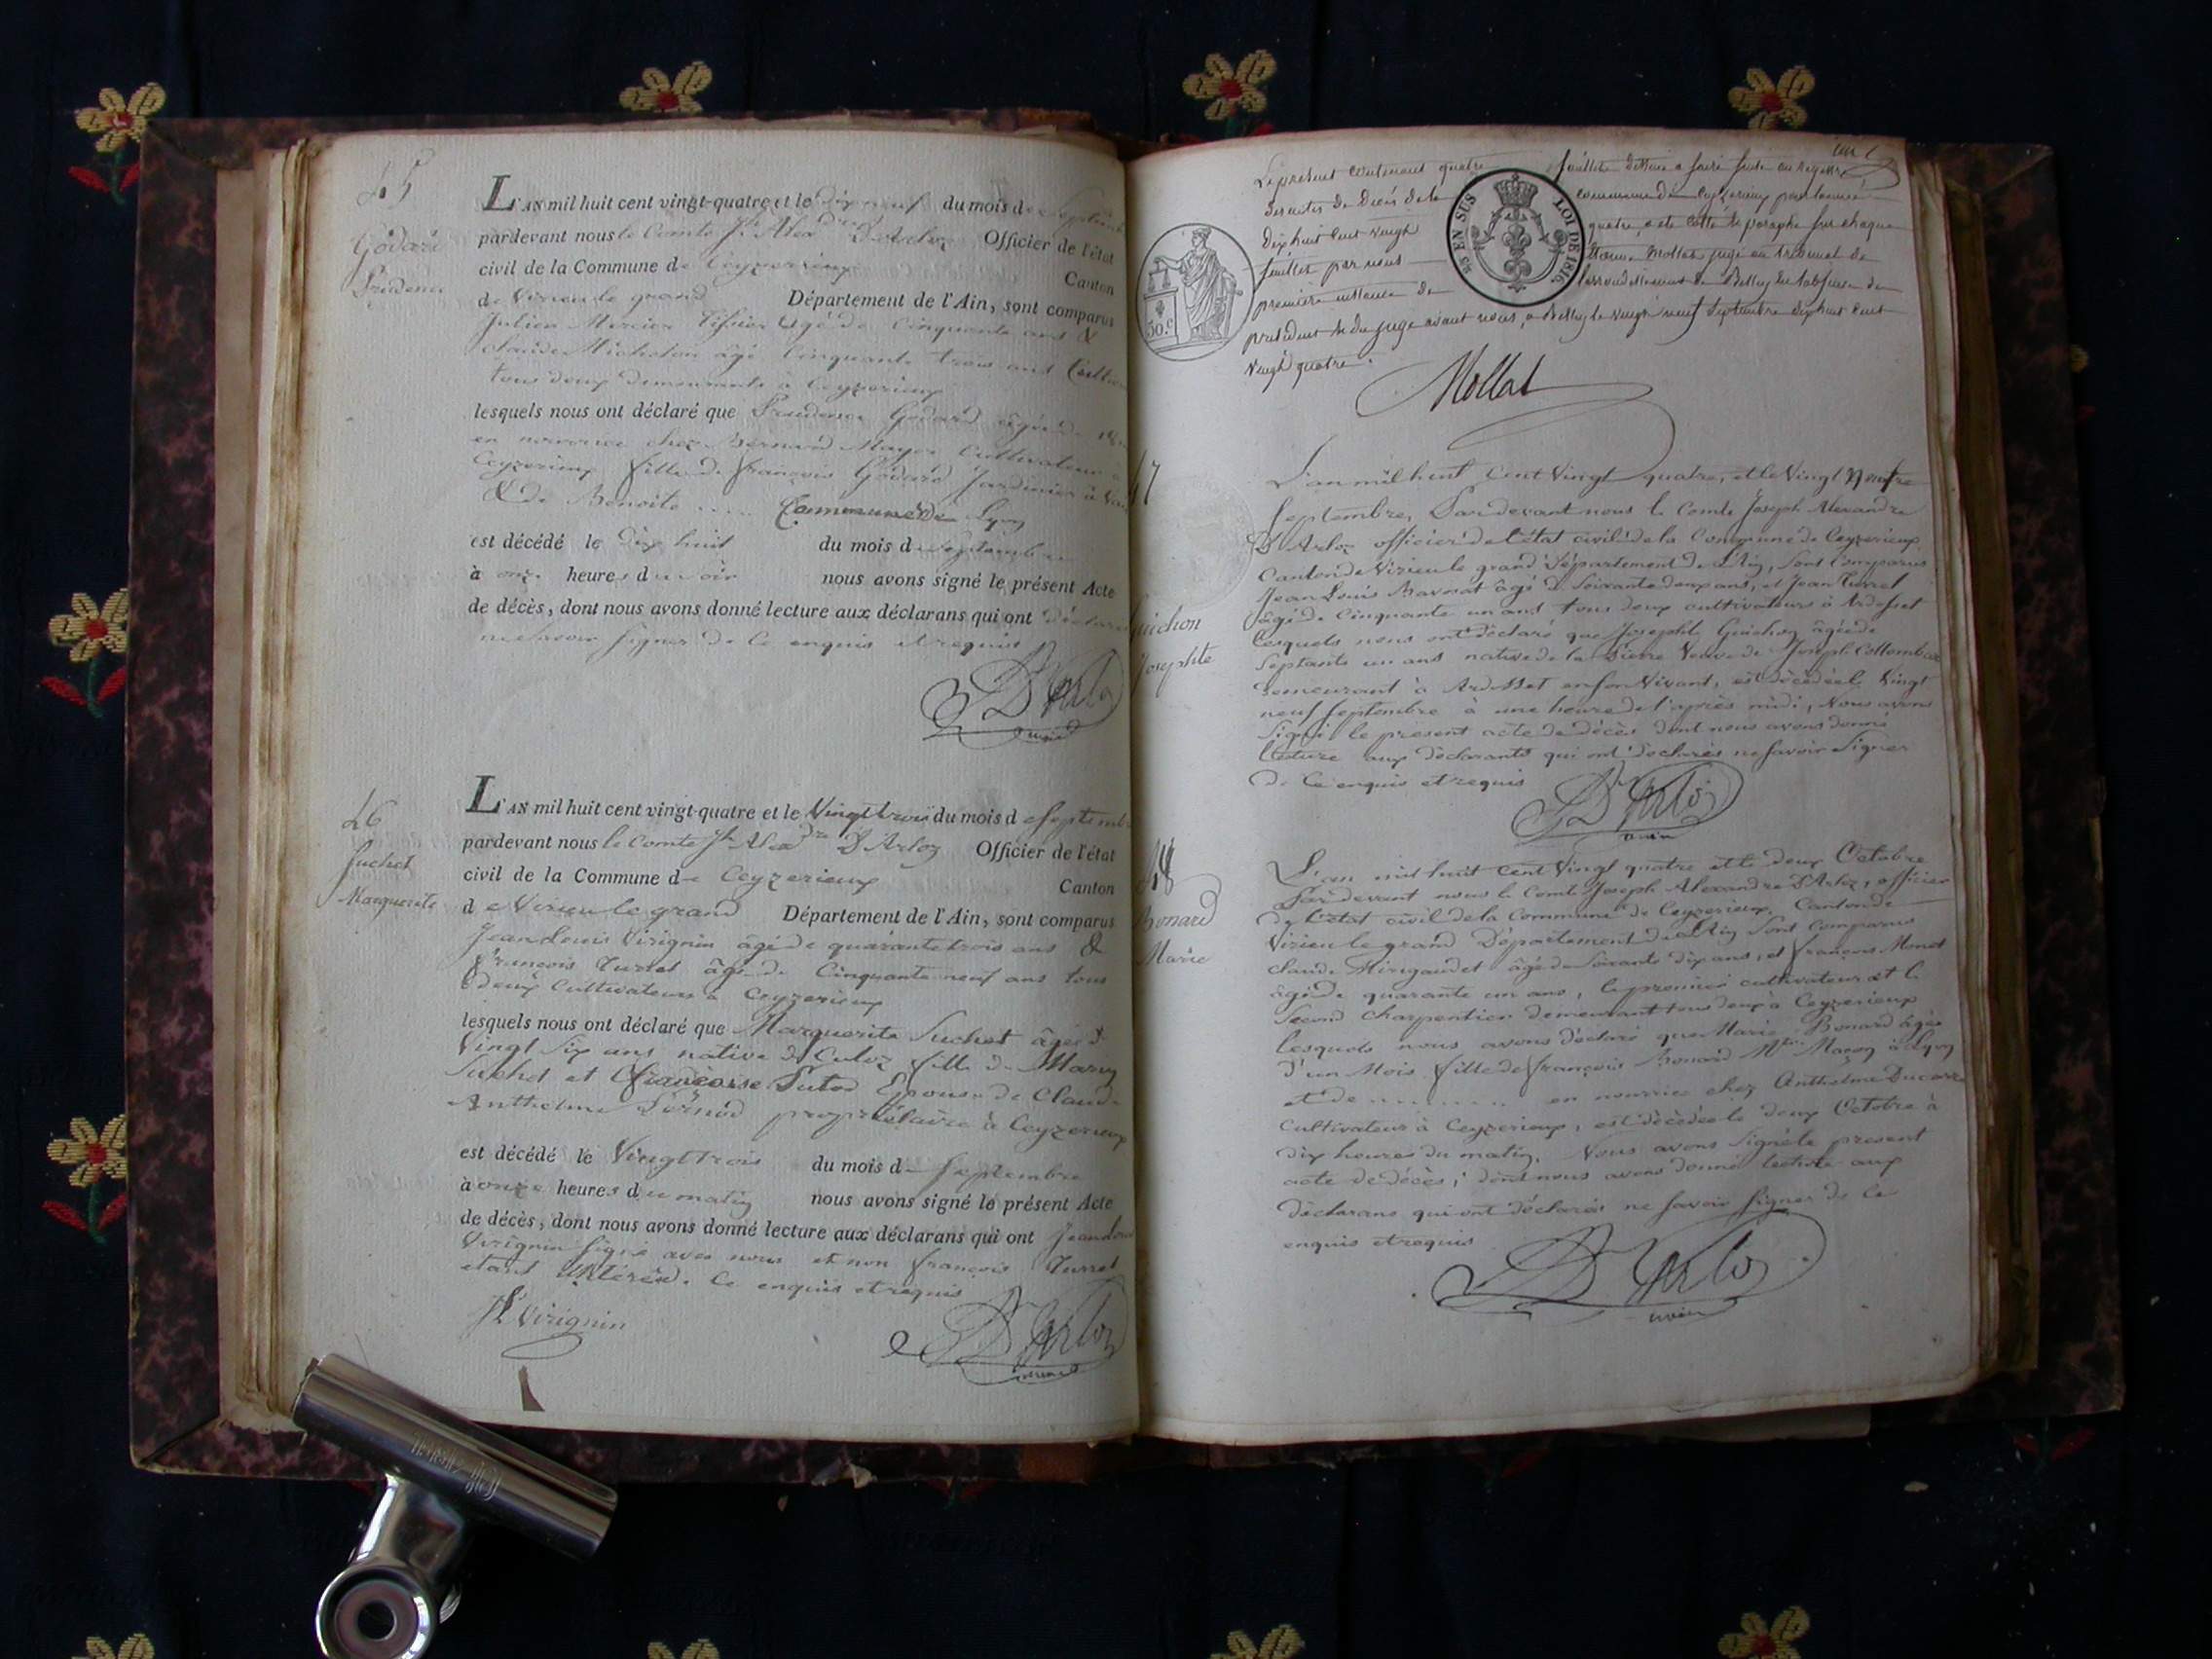 45
Godard
Prudence
L'AN mil huit cent vingt-quatre et le dix neuf du mois de Septembre
pardevant nous le Comte Jh Alexdre D'arloz Officier de l'état
civil de la Commune de Ceyzerieux Canton
de Virieu le grand Département de l'Ain, sont comparus
Julien Mercier Tissier âgé de Cinquante ans &
claude Michelon âgé Cinquante trois ans
tous deux demeurants à Ceyzerieux
lesquels nous ont déclaré que Prudence Godard âgée de
en nourrice chez Bernard Mayer Cultivateur à
Ceyzerieux fille de françois Godard Jardinier à
& de Benoite ..... Commune de Lyon
est décédé le dix huit du mois de Septembre
à onze heures du soir nous avons signé le présent Acte
de décès, dont nous avons donné lecture aux déclarans qui ont déclaré
ne savoir signer de Ce enquis et requis
D'Arloz
46
Suchet
Marguerite
L'AN mil huit cent vingt-quatre et le Vingt trois du mois de Septembre
pardevant nous le Comte Jh Alexdre D'Arloz Officier de l'état
civil de la Commune de Ceyzerieux Canton
de Virieu le grand Département de l'Ain, sont comparus
Jean Louis Virignin âgé de quarante trois ans &
françois Turrel âgé de Cinquante neuf ans tous
deux Cultivateurs à Ceyzerieux
lesquels nous ont déclaré que Marguerite Suchet âgée de
Vingt Six ans native de Culoz fille de Marin
Suchet et françoise Epouse de Claude
Anthelme propriétaire à Ceyzerieux
est décédé le Vingt trois du mois de Septembre
à onze heures du matin nous avons signé le présent Acte
de décès, dont nous avons donné lecture aux déclarans qui ont Jean Louis
Virignin signé avec nous et non françois Turrel
étant illitéré. Ce enquis et requis
JL Virignin
D'Arloz
Le présent contenant quatre feuillets destiné a faire suite au registre
des actes de Décès de la commune de Ceyzerieux pour l'année
dix huit cent vingt quatre, a été cotté & paraphé sur chaque
feuillet par nous Mollat juge au tribunal de
première instance de l'arrondissement de Belley en l'absence du
président & du juge avant nous, a Belley le vingt neuf Septembre dix huit cent
vingt quatre.
30.c
EN SUS
LOI DE 1816
Mollat
47
Guichon
Josephte
L'an mil huit Cent Vingt quatre, et le Vingt Neuf
Septembre, Pardevant nous le Comte Joseph Alexandre
D'Arloz officier de l'état civil de la Commune de Ceyzerieux
Canton de Virieu le grand Département de l'Ain, sont Comparus
Jean Louis Marnat âgé de Soixante deux ans, et Jean Turrel
âgé de Cinquante un ans tous deux cultivateurs à Ardosset
lesquels nous ont déclaré que Josephte Guichon âgée de
Septante un ans native de la Pierre Veuve de Joseph Collombet
demeurant à Ardosset en son Vivant, est décédée le Vingt
neuf Septembre à une heure de l'après midi, Nous avons
Signé le présent acte de décès dont nous avons donné
lecture aux déclarants qui ont déclarés ne savoir Signer
de Ce enquis et requis
D'Arloz
48
Bonard
Marie
L'an mil huit cent Vingt quatre et le deux Octobre
Pardevant nous le Comte Joseph Alexandre D'Arloz, officier
de l'état civil de la Commune de Ceyzerieux, Canton de
Virieu le grand Département de l'Ain Sont comparus
claude Mirigaudet âgé de Soixante dix ans, et françois Monet
âgé de quarante un ans, le premier cultivateur et le
Second charpentier demeurant tous deux à Ceyzerieux
lesquels nous avons déclaré que Marie Bonard âgée
d'un Mois fille de françois Bonard Mtre Maçon à Lyon
et de .......... en nourrice chez Anthelme Ducarre
Cultivateur à Ceyzerieux, est décédée le deux Octobre à
dix heures du matin. Nous avons Signé le présent
acte de décès; dont nous avons donné lecture aux
déclarans qui ont déclarés ne savoir signer de Ce
enquis et requis
D'Arloz